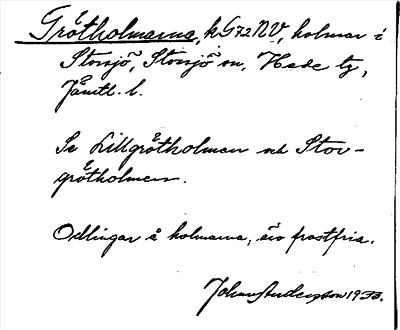 Gråtholmarna, k G72 NV, holmar i
Storsjö, Storsjö sn, Hede tg,
Jämtl. l.
Se Lillgråtholmen och Stor-
gråtholmen.
Odlingar å holmarna, äro frostfria.
Johan Andersson 19